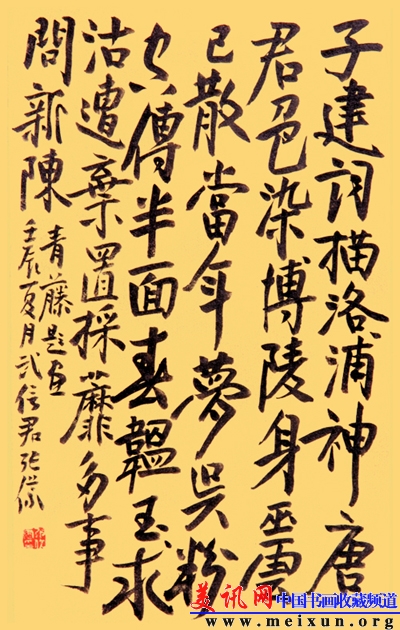 子建詞描洛浦神唐
君色染博陵身巫雲
已散當年夢吳粉
空傳半面春韞玉求
沽遭棄置採蘼多事
問新陳青藤題画
壬辰夏月武信君
美讯网
中国书画收藏频道
www.meixun.org